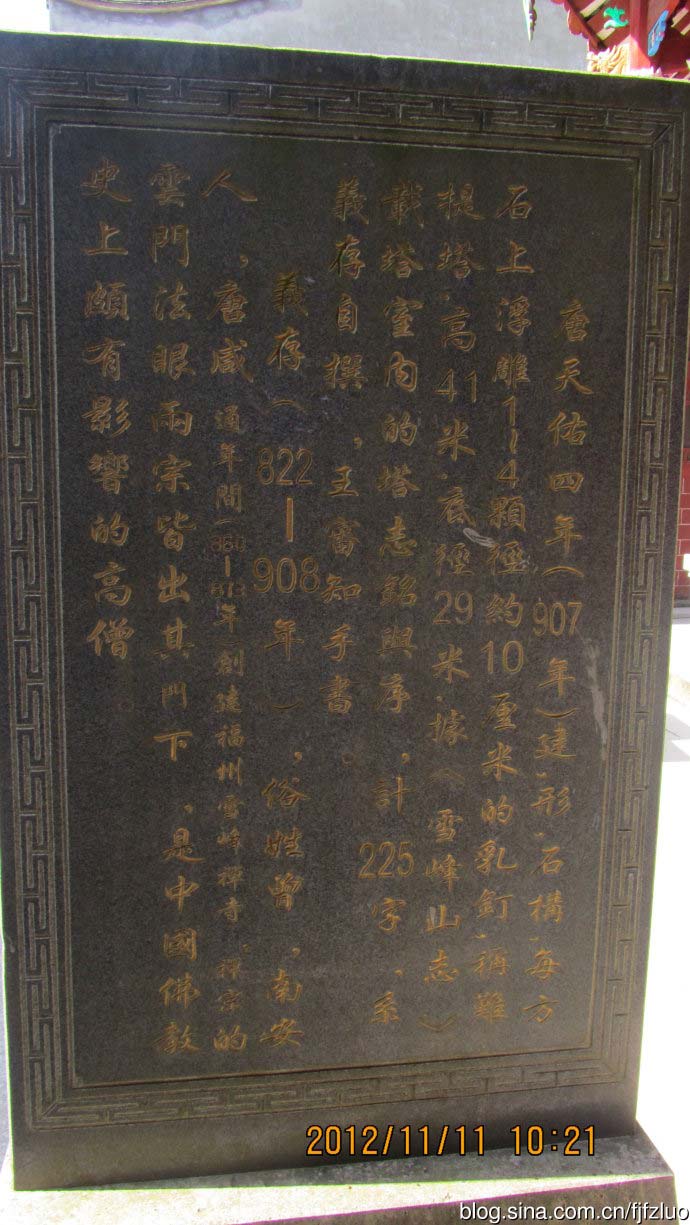 唐天佑四年(907年)建,形,石構,每方
石上浮雕1~4顆徑約10厘米的乳釘,稱難
提塔,高41米,底徑29米,據《雪峰山志》
載塔室内的塔志銘與序,計225字,系
義存自撰,王審知手書。
義存(822—908年),俗姓曾,南安
人,唐咸通年間(860—873年)創建福州雪峰禪寺,禪宗的
雲門法眼兩宗皆出其門下,是中國佛教
史上頗有影響的高僧
2012/11/11 10:21
blog.sina.com.cn/fjfzluo